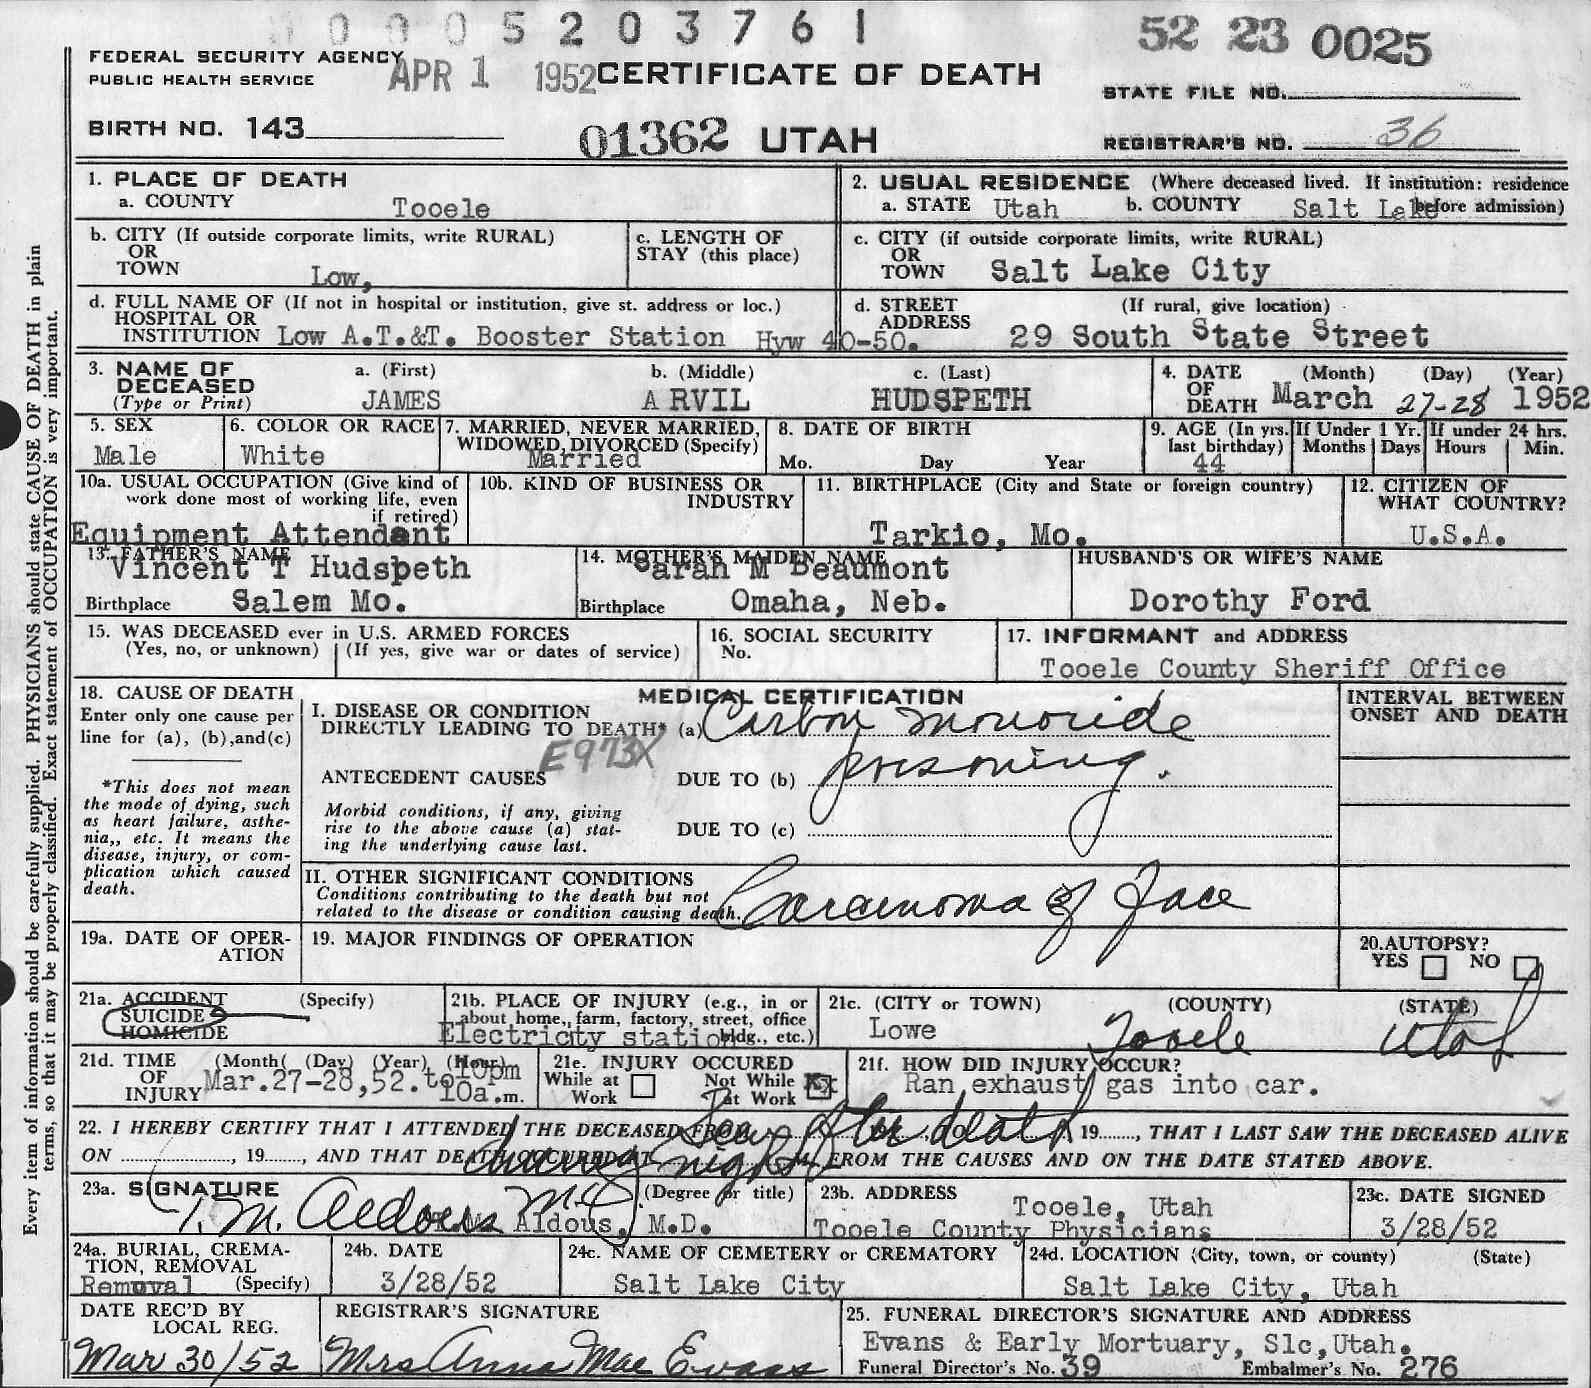 0005203761
52 23 0025
FEDERAL SECURITY AGENCY
PUBLIC HEALTH SERVICE
APR 1 1952
CERTIFICATE OF DEATH
STATE FILE NO.
BIRTH NO. 143
01362 UTAH
REGISTRAR'S NO. 36
Every item of information should be carefully supplied. PHYSICIANS should state CAUSE OF DEATH in plain
terms, so that it may be properly classified. Exact statement of OCCUPATION is very important.
1. PLACE OF DEATH
a. COUNTY Tooele
2. USUAL RESIDENCE (Where deceased lived. If institution: residence
before admission)
a. STATE Utah b. COUNTY Salt Lake
b. CITY (If outside corporate limits, write RURAL)
OR
TOWN Low,
c. LENGTH OF
STAY (this place)
c. CITY (if outside corporate limits, write RURAL)
OR
TOWN Salt Lake City
d. FULL NAME OF (If not in hospital or institution, give st. address or loc.)
HOSPITAL OR
INSTITUTION Low A.T.&T. Booster Station Hyw 40-50.
d. STREET (If rural, give location)
ADDRESS 29 South State Street
3. NAME OF
DECEASED
(Type or Print)
a. (First) JAMES
b. (Middle) A RVIL
c. (Last) HUDSPETH
4. DATE
OF
DEATH
(Month) (Day) (Year)
March 27-28 1952
5. SEX
Male
6. COLOR OR RACE
White
7. MARRIED, NEVER MARRIED,
WIDOWED, DIVORCED (Specify)
Married
8. DATE OF BIRTH
Mo. Day Year
9. AGE (In yrs.
last birthday)
44
If Under 1 Yr.
Months Days
If under 24 hrs.
Hours Min.
10a. USUAL OCCUPATION (Give kind of
work done most of working life, even
if retired)
Equipment Attendant
10b. KIND OF BUSINESS OR
INDUSTRY
11. BIRTHPLACE (City and State or foreign country)
Tarkio, Mo.
12. CITIZEN OF
WHAT COUNTRY?
U.S.A.
13. FATHER'S NAME
Vincent T Hudspeth
Birthplace Salem Mo.
14. MOTHER'S MAIDEN NAME
Sarah M Beaumont
Birthplace Omaha, Neb.
HUSBAND'S OR WIFE'S NAME
Dorothy Ford
15. WAS DECEASED ever in U.S. ARMED FORCES
(Yes, no, or unknown) (If yes, give war or dates of service)
16. SOCIAL SECURITY
No.
17. INFORMANT and ADDRESS
Tooele County Sheriff Office
18. CAUSE OF DEATH
Enter only one cause per
line for (a), (b),and(c)
*This does not mean
the mode of dying, such
as heart failure, asthe-
nia,, etc. It means the
disease, injury, or com-
plication which caused
death.
MEDICAL CERTIFICATION
INTERVAL BETWEEN
ONSET AND DEATH
I. DISEASE OR CONDITION
DIRECTLY LEADING TO DEATH* (a) Carbon monoxide
E973X
ANTECEDENT CAUSES DUE TO (b) poisoning.
Morbid conditions, if any, giving
rise to the above cause (a) stat-
ing the underlying cause last.
DUE TO (c)
II. OTHER SIGNIFICANT CONDITIONS
Conditions contributing to the death but not
related to the disease or condition causing death.
Carcinoma of face
19a. DATE OF OPER-
ATION
19. MAJOR FINDINGS OF OPERATION
20.AUTOPSY?
YES NO
21a. ACCIDENT (Specify)
SUICIDE
HOMICIDE
21b. PLACE OF INJURY (e.g., in or
about home,, farm, factory, street, office
bldg., etc.)
Electricity station
21c. (CITY or TOWN) (COUNTY) (STATE)
Lowe Tooele Utah
21d. TIME (Month( (Day) (Year) (Hour)
OF
INJURY
Mar.27-28,52. to 10pm
10a.m.
21e. INJURY OCCURED
While at
Work
Not While
at Work
21f. HOW DID INJURY OCCUR?
Ran exhaust gas into car.
22. I HEREBY CERTIFY THAT I ATTENDED THE DECEASED FROM 19......., THAT I LAST SAW THE DECEASED ALIVE
Seen after death
ON ..............., 19......, AND THAT DEATH OCCURED AT M., FROM THE CAUSES AND ON THE DATE STATED ABOVE.
during night
23a. SIGNATURE (Degree or title)
T.M. Aldous MD
Aldous, M.D.
23b. ADDRESS
Tooele, Utah
Tooele County Physicians
23c. DATE SIGNED
3/28/52
24a. BURIAL, CREMA-
TION, REMOVAL
Removal (Specify)
24b. DATE
3/28/52
24c. NAME OF CEMETERY or CREMATORY
Salt Lake City
24d. LOCATION (City, town, or county) (State)
Salt Lake City, Utah
DATE REC'D BY
LOCAL REG.
Mar 30/52
REGISTRAR'S SIGNATURE
Mrs Anna Mae Evans
25. FUNERAL DIRECTOR'S SIGNATURE AND ADDRESS
Evans & Early Mortuary, Slc,Utah.
Funeral Director's No. 39 Embalmer's No. 276